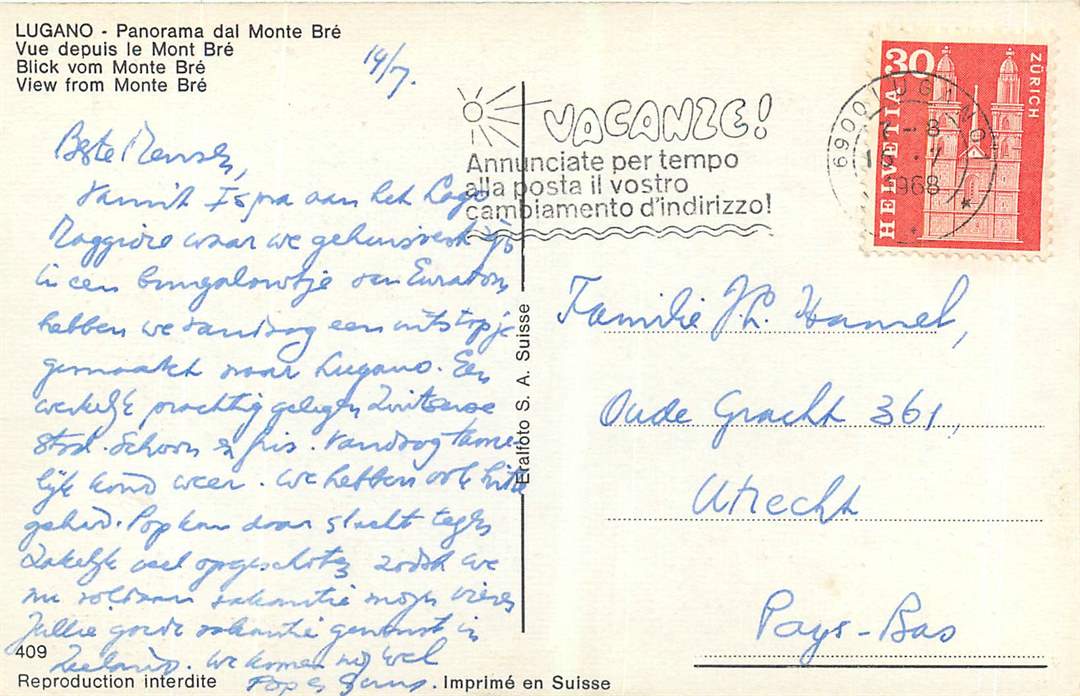 LUGANO - Panorama dal Monte Brè
Vue depuis le Mont Brè
Blick vom Monte Brè
View from Monte Brè
14/7.
Beste Mensen,
Vanuit Ispra aan het Lago
Maggiore waar we gehuisvest zijn
in een bungalowtje van Euratom
hebben we vandaag een uitstapje
gemaakt naar Lugano. Een
werkelijk prachtig gelegen Zwitserse
stad. Schoon en fris. Vandaag tame-
lijk koud weer. We hebben ook hitte
gehad. Pop kan daar slecht tegen
Zakelijk veel opgeschoten zodat we
nu voldaan vakantie mogen vieren
Jullie goede vakantie gewenst in
Zeeland. We komen nog wel
Pop en
409
Reproduction interdite
Imprimé en Suisse
Eralfoto S. A. Suisse
VACANZE!
Annunciate per tempo
alla posta il vostro
cambiamento d'indirizzo!
6900 LUGANO 1
- 8
7
1968
30
HELVETIA
ZÜRICH
Familie J.L. Hamel,
Oude Gracht 361,
Utrecht
Pays-Bas